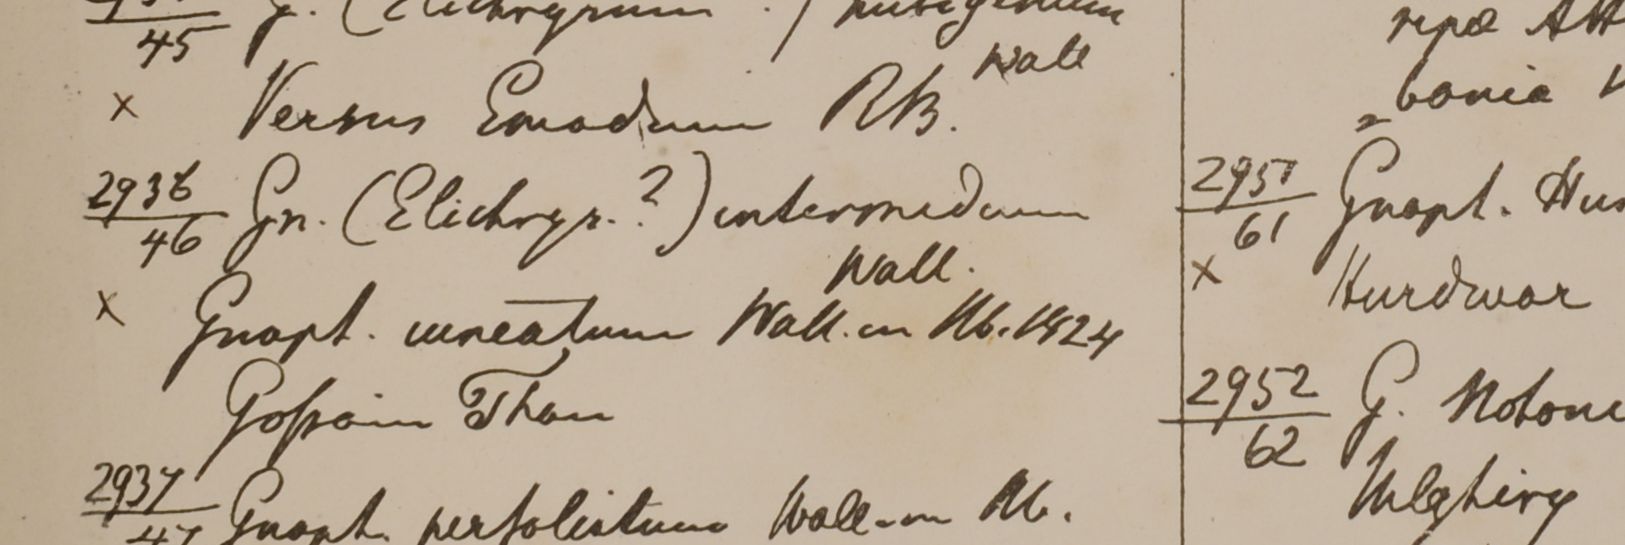 45 G. (Elichrysum ?) nubigenum
Wall
x Versus Emodum RB.
2936
46 Gn. (Elichrys. ?) intermedium
Wall.
x Gnaph. cuneatum Wall. in Hb. 1824
Gossain Than
2937
47 Gnaph. perfoliatum Wall. in Hb.
ripæ Att
bania
2951
61 Gnaph. Hur
x Hurdwar
2952
62 G. Notoni
Nilghiry